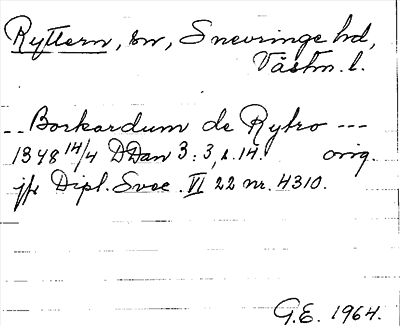 Ryttern, sn, Snevringe hd,
Västm. l.
-- Boskardum de Rytro ---
1348 14/4 DDan 3:3, s. 14. orig.
jfr Dipl. Svec. VI 22 nr. 4310.
G.E. 1964.